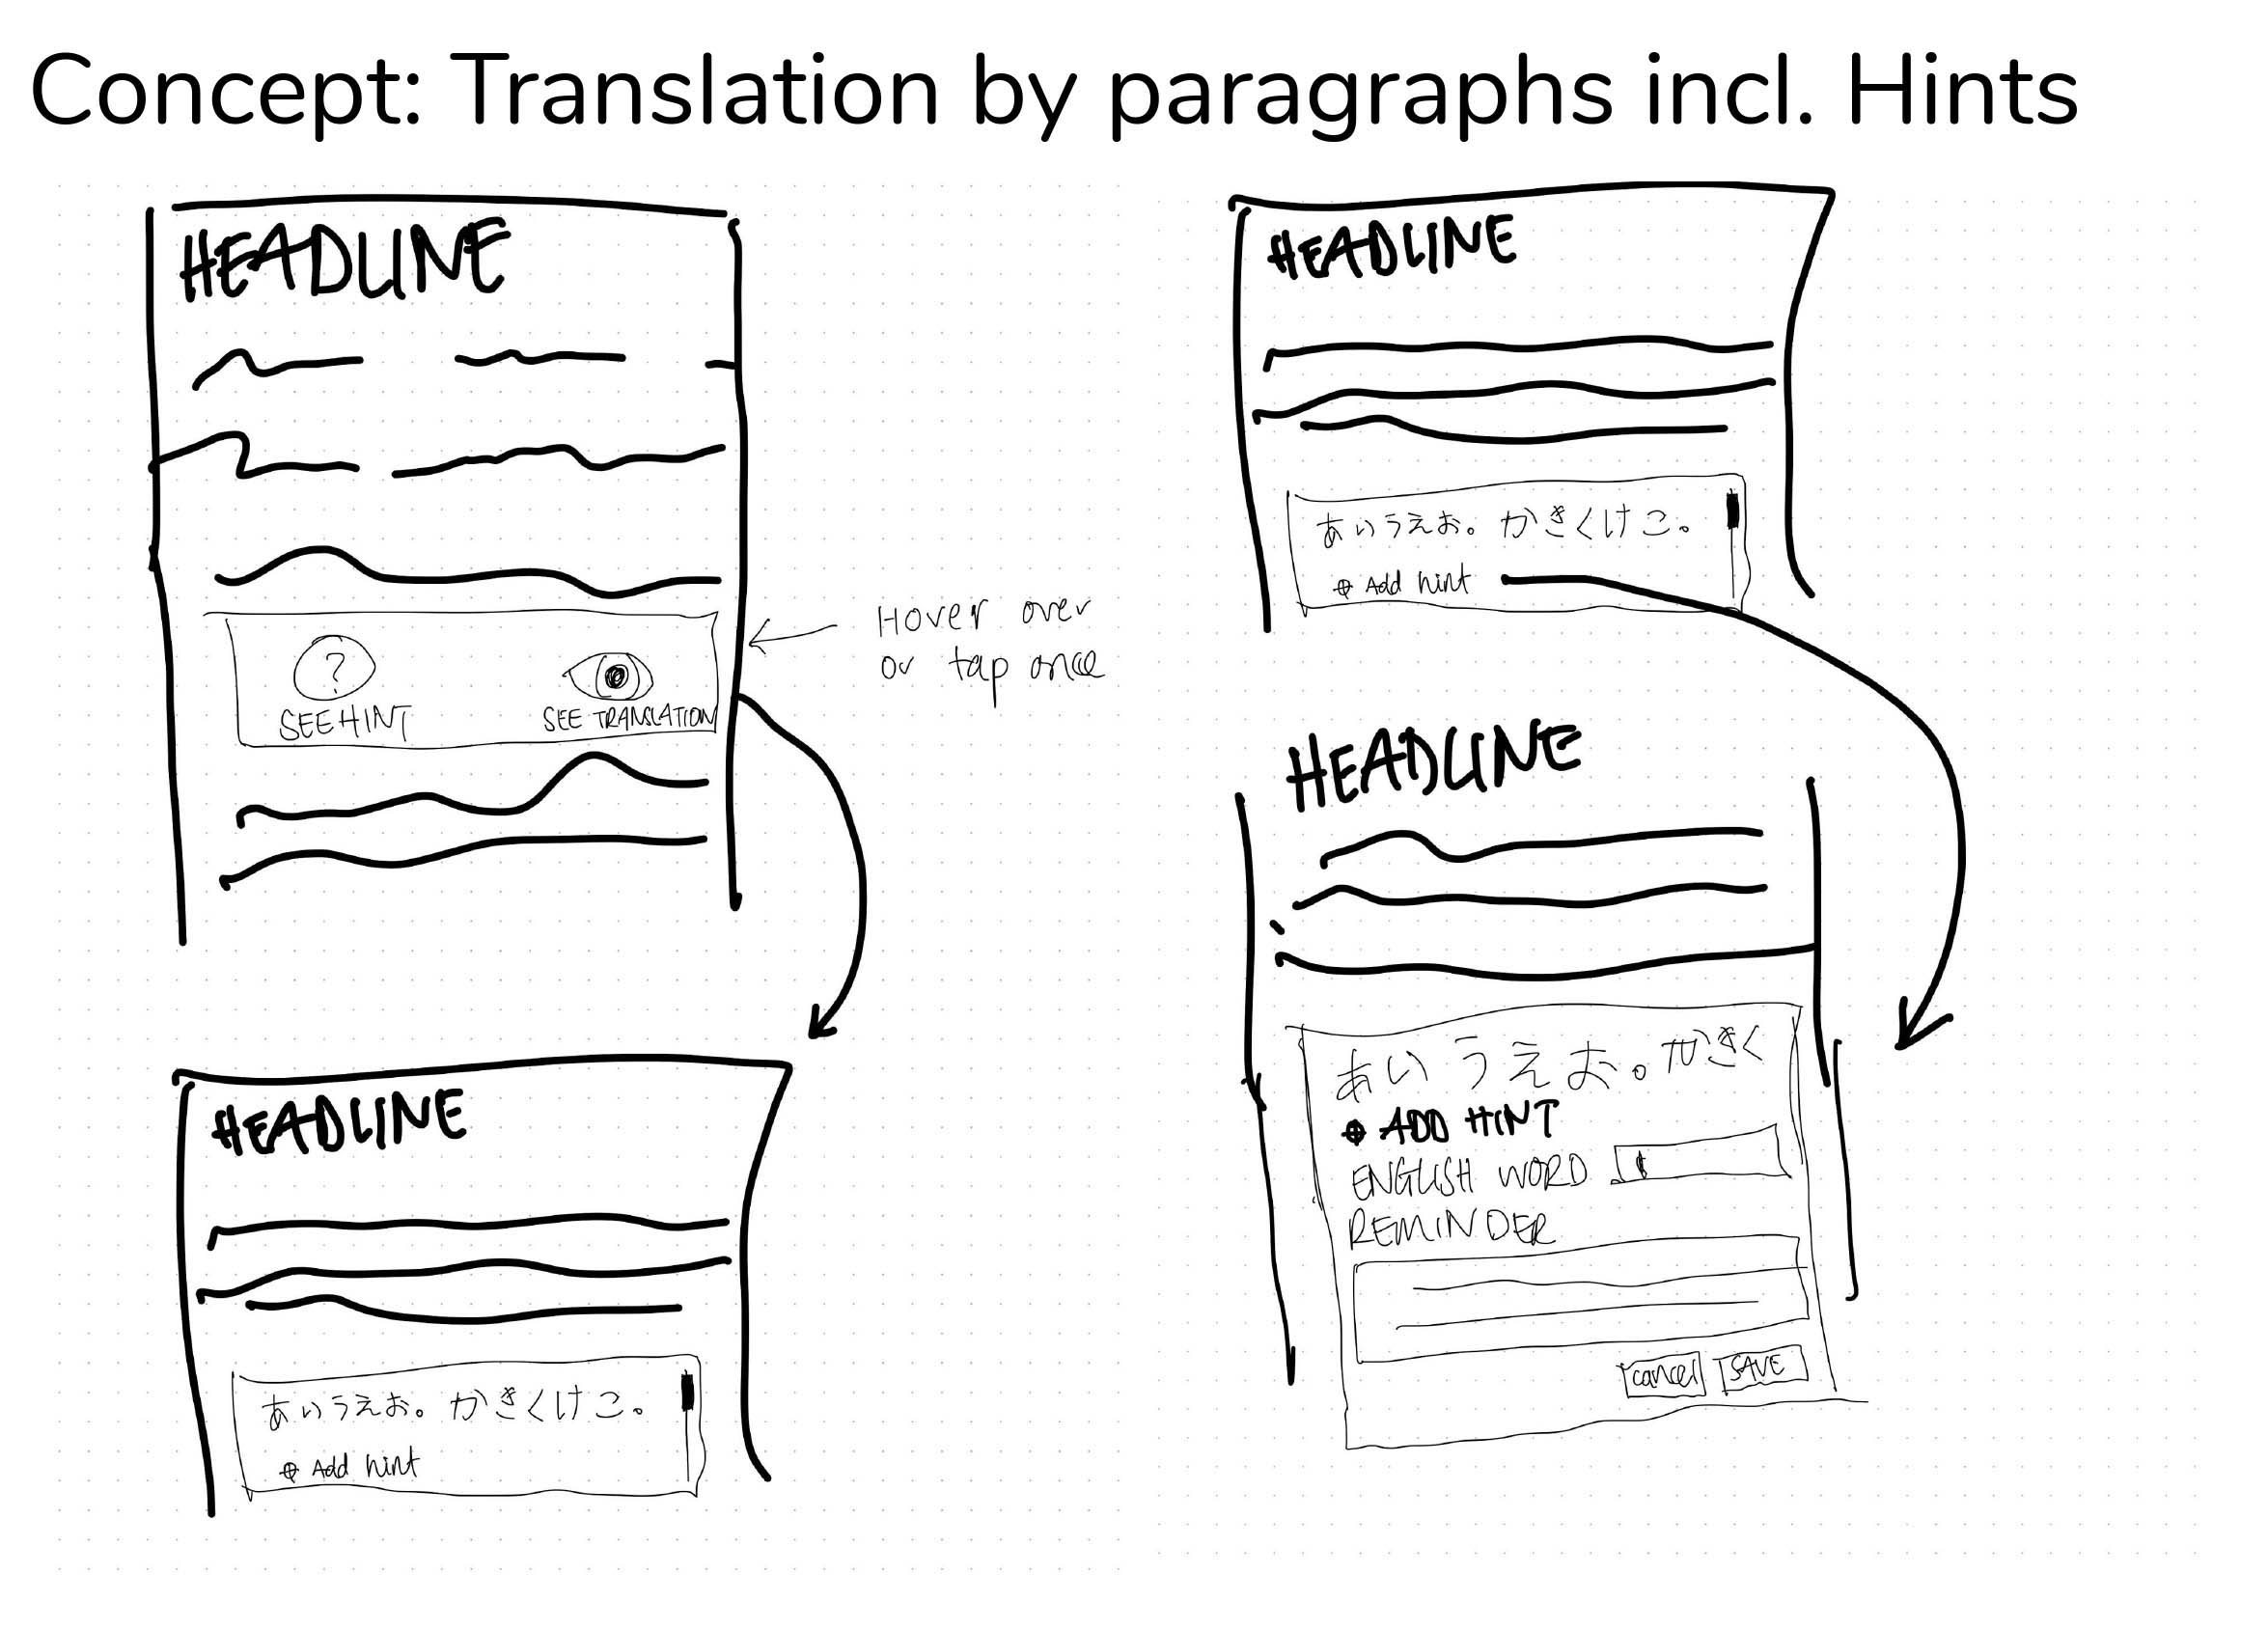 Concept: Translation by paragraphs incl. Hints
HEADLINE
?
SEE HINT
SEE TRANSLATION
Hover over
or tap once
HEADLINE
あいうえお。かきくけこ。
⊕ Add hint
HEADLINE
あいうえお。かきくけこ。
⊕ Add hint
HEADLINE
あいうえお。かきく
⊕ ADD HINT
ENGLISH WORD
REMINDER
cancel SAVE